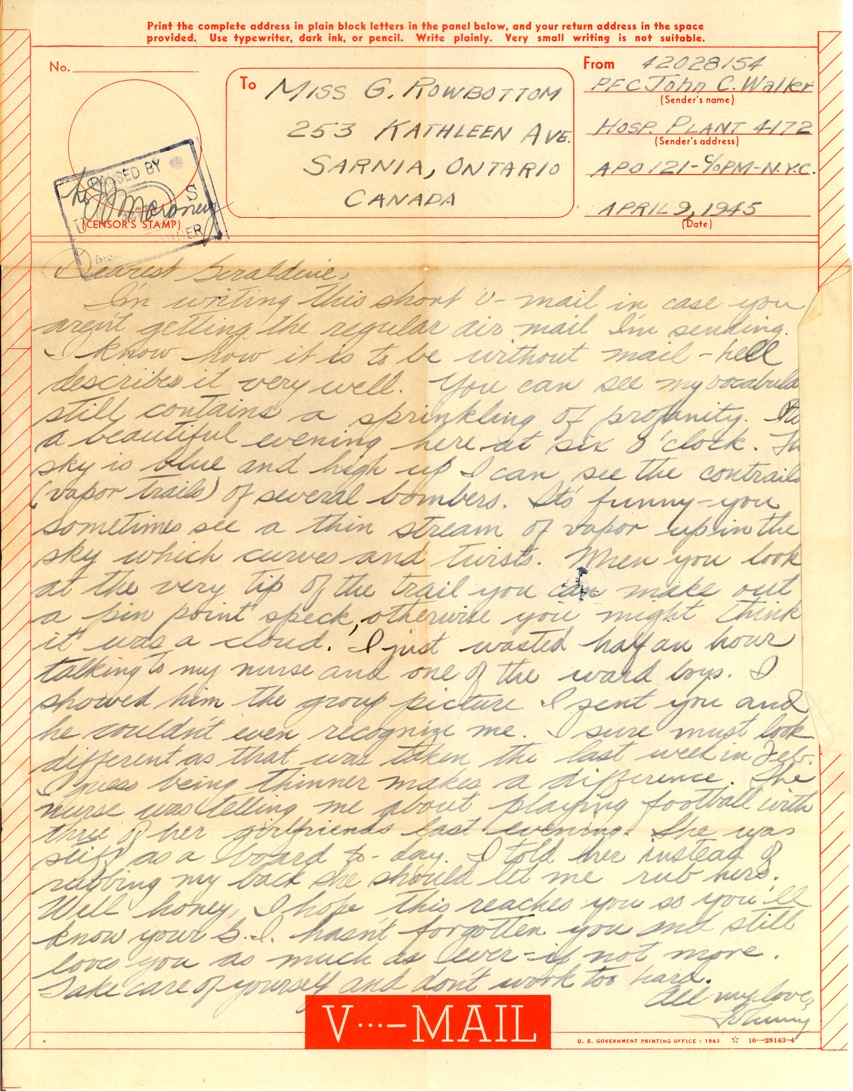 Print the complete address in plain block letters in the panel below, and your return address in the space
provided. Use typewriter, dark ink, or pencil. Write plainly. Very small writing is not suitable.
No.
To
MISS G. ROWBOTTOM
253 KATHLEEN AVE.
SARNIA, ONTARIO
CANADA
From 42028154
PFC John C. Walker
(Sender's name)
HOSP. PLANT 4172
(Sender's address)
APO 121-c/o PM-N.Y.C.
APRIL 9, 1945
(Date)
PASSED BY
(CENSOR'S STAMP)
Dearest Geraldine,
I'm writing this short V-mail in case you
aren't getting the regular air mail I'm sending.
I know how it is to be without mail - hell
describes it very well. You can see my vocabula
still contains a sprinkling of profanity. It's
a beautiful evening here at six o'clock. Th
sky is blue and high up I can see the contrails
(vapor trails) of several bombers. It's funny - you
sometimes see a thin stream of vapor up in the
sky which curves and twists. When you look
at the very tip of the trail you can make out
a pin point speck, otherwise you might think
it was a cloud. I just wasted half an hour
talking to my nurse and one of the ward boys. I
showed him the group picture I sent you and
he couldn't even recognize me. I sure must look
different as that was taken the last week in Feb.
I guess being thinner makes a difference. The
nurse was telling me about playing football with
three of her girlfriends last evening. She was
stiff as a board to-day. I told her instead of
rubbing my back she should let me rub hers.
Well honey, I hope this reaches you so you'll
know your G.I. hasn't forgotten you and still
loves you as much as ever - if not more.
Take care of yourself and don't work too hard.
All my love,
Johnny
V···–MAIL
U. S. GOVERNMENT PRINTING OFFICE : 1943 ☆ 16—28143-4